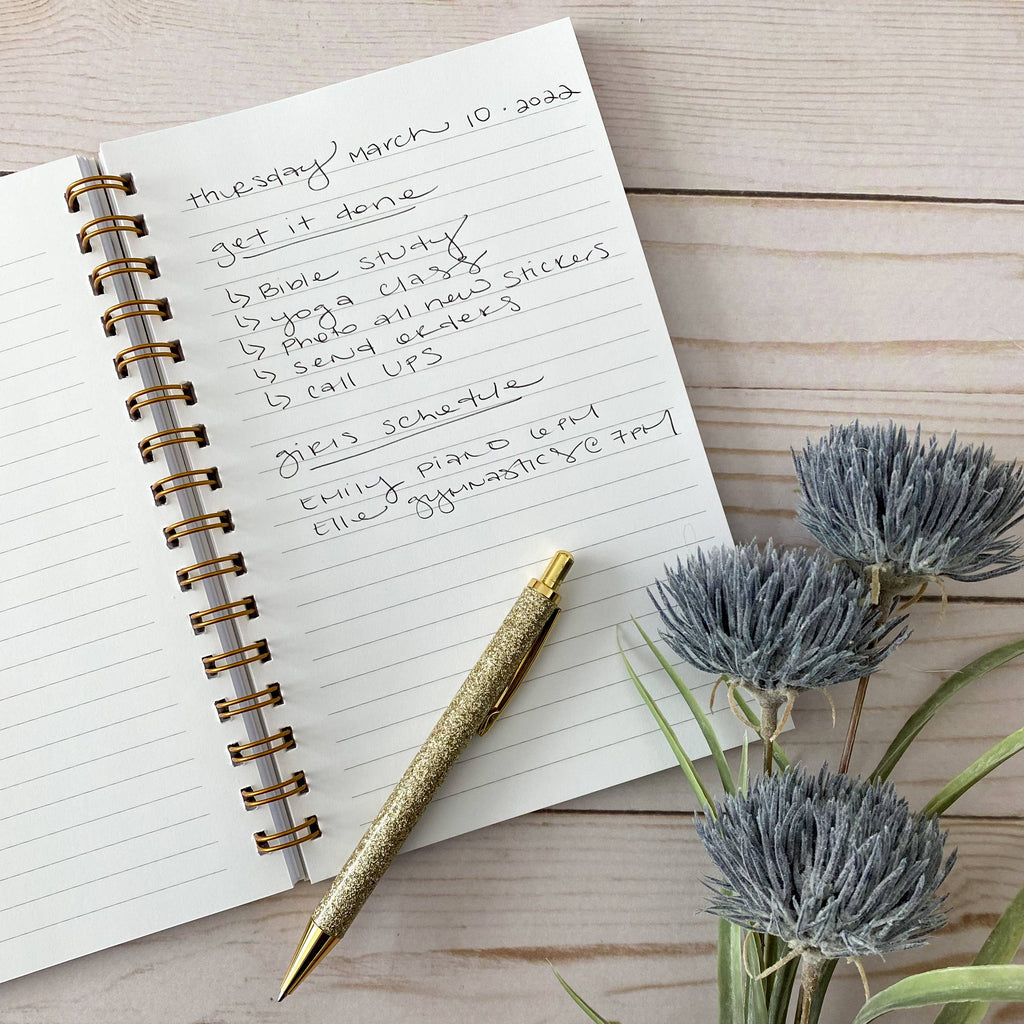 thursday march 10 . 2022
get it done
↳ Bible study
↳ yoga class
↳ photo all new stickers
↳ send orders
↳ call UPS
girls schedule
EMily piano 6 PM
Elle gymnastics @ 7PM